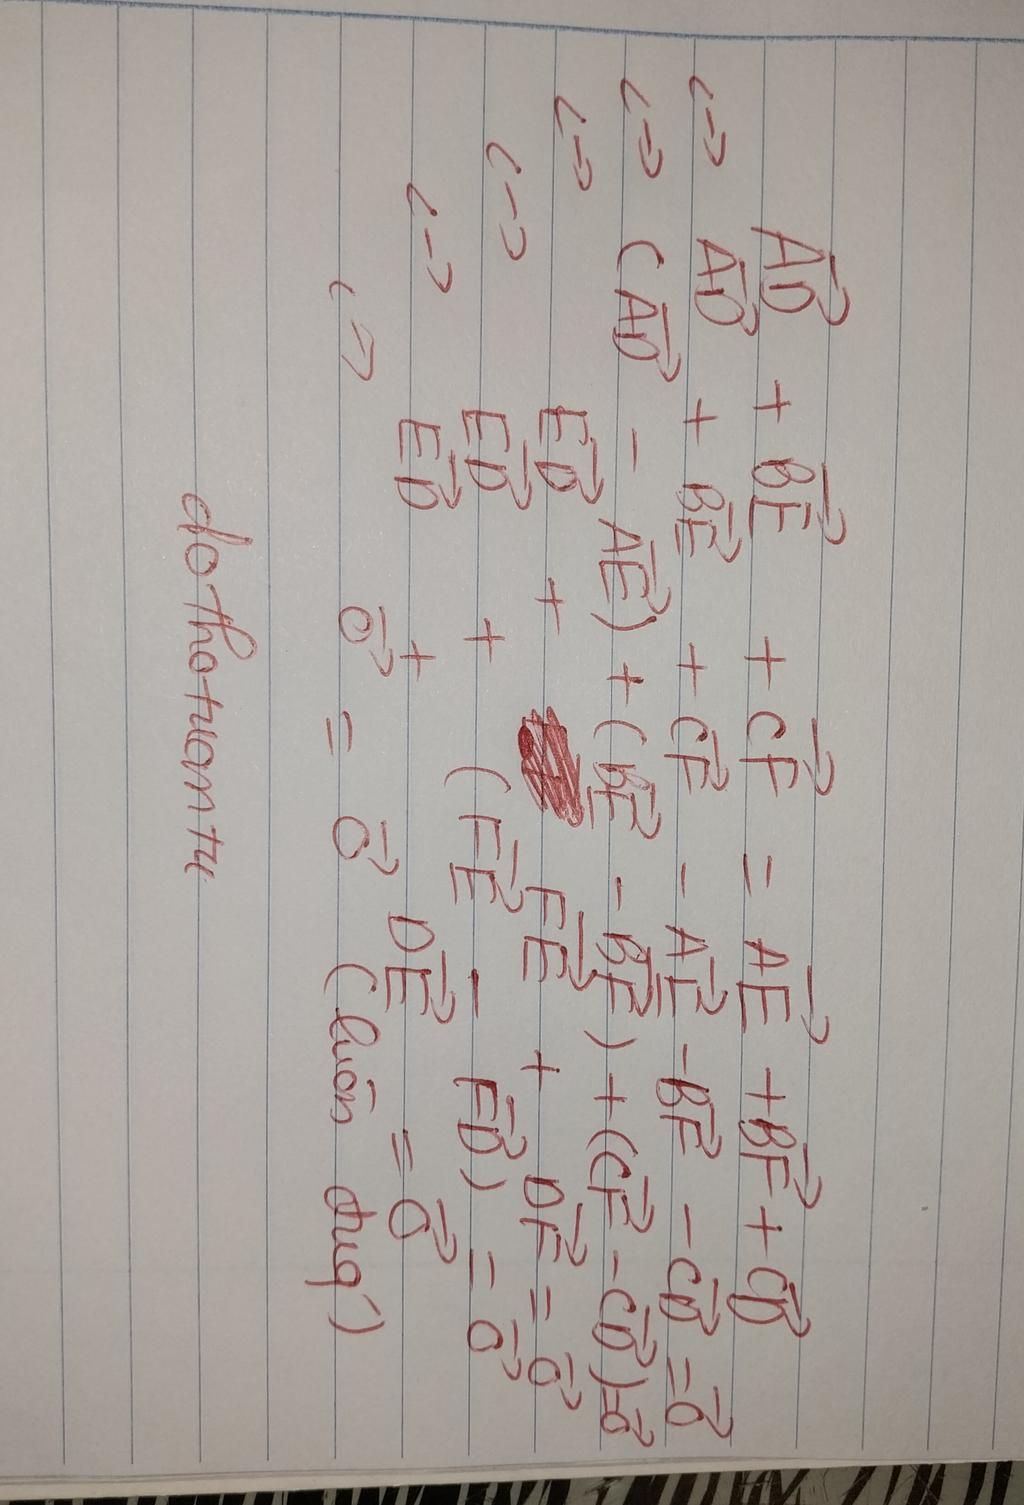 AD⃗ + BE⃗ + CF⃗ = AE⃗ + BF⃗ + CD⃗
<-> AD⃗ + BE⃗ + CF⃗ - AE⃗ - BF⃗ - CD⃗ = 0⃗
<-> (AD⃗ - AE⃗) + (BE⃗ - BF⃗) + (CF⃗ - CD⃗) = 0⃗
<-> ED⃗ + FE⃗ + DF⃗ = 0⃗
<-> ED⃗ + (FE⃗ - FD⃗) = 0⃗
<-> ED⃗ + DE⃗ = 0⃗
<-> 0⃗ = 0⃗ (luôn đúg)
dothotuantu